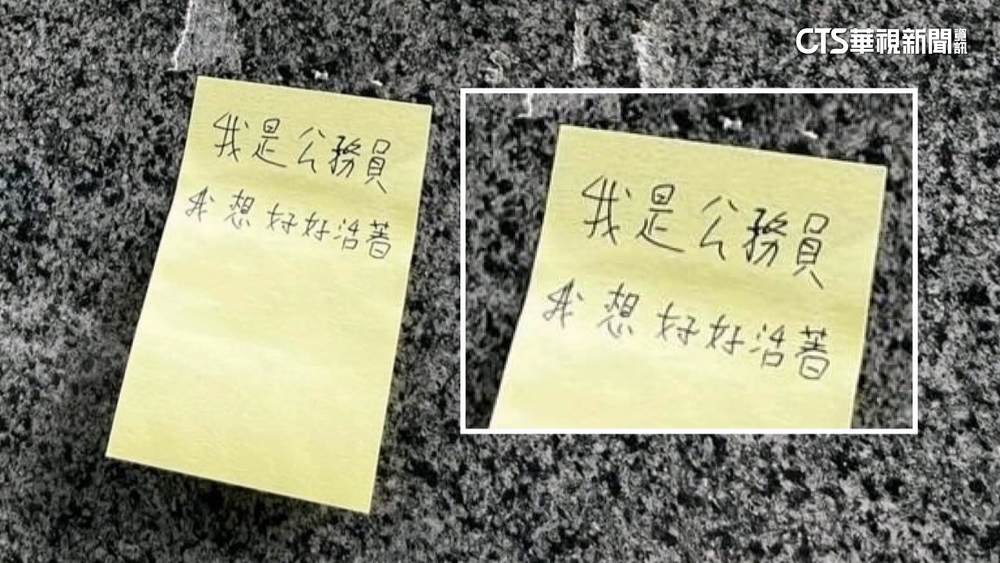 CTS華視新聞資訊
我是公務員
我想好好活著
我是公務員
我想好好活著